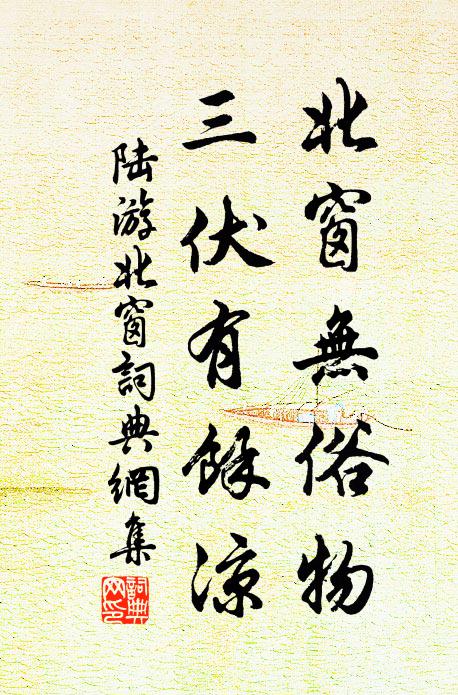 北窗無俗物
三伏有餘涼
陸游北窗詞典網集
詞典
網印